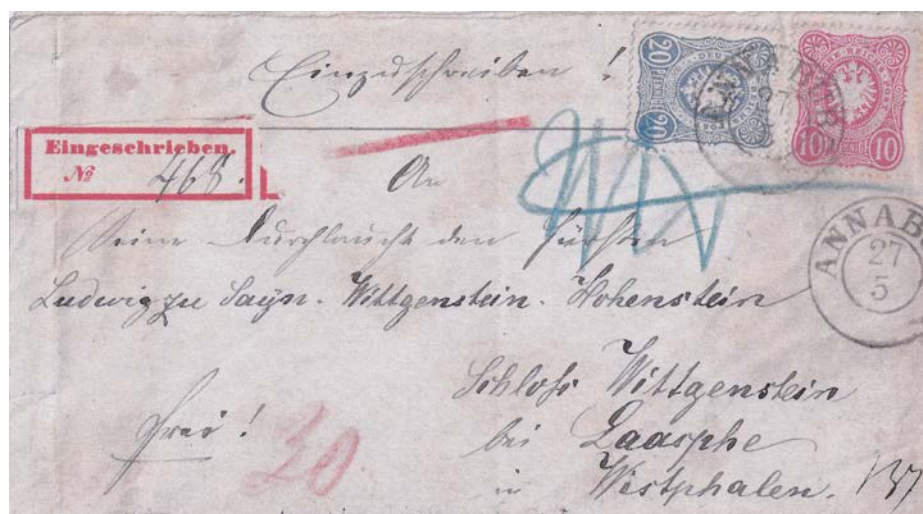 Einzuschreiben!
20 20
10 10
Eingeschrieben.
№ 468.
An
Seine Durchlaucht den Fürsten
Ludwig zu Sayn-Wittgenstein-Hohenstein
ANNAB
27
5
Schloß Wittgenstein
frei!
30
bei Laasphe
in Westphalen.